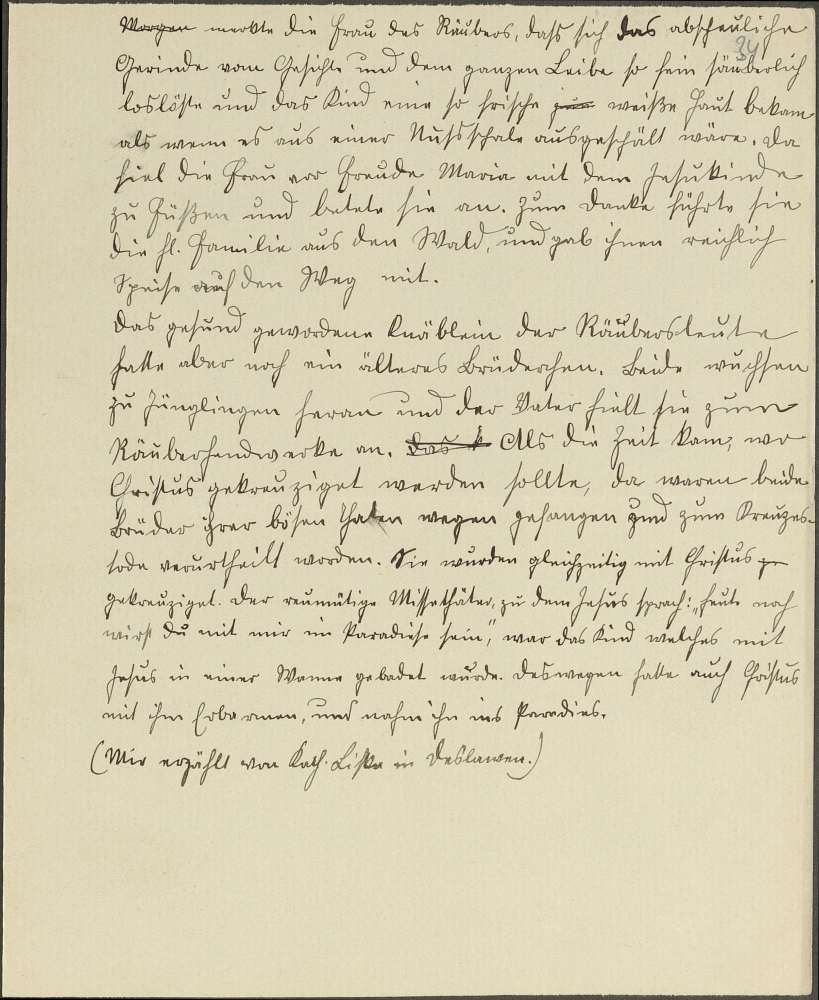 Morgen merkte die Frau des Räubers, daß sich das abscheuliche
34
Gerinde vom Gesichte und dem ganzen Leibe so fein säuberlich
loslöste und das Kind eine so frische weiße Haut bekam
als wenn es aus einer Nußschale ausgeschält wäre. Da
fiel die Frau vor Freude Maria mit dem Jesukinde
zu Füßen und betete sie an. Zum Danke führte sie
die hl. Familie aus den Wald, und gab ihnen reichlich
Speise auf den Weg mit.
Das gesund gewordene Knäblein der Räubersleute
hatte aber noch ein älteres Brüderchen. Beide wuchsen
zu Jünglingen heran und der Vater hielt sie zum
Räuberhandwerke an. Das k Als die Zeit kam, wo
Christus gekreuziget werden sollte, da waren beide
Brüder ihrer bösen Thaten wegen gefangen und zum Kreuzes-
tode verurtheilt worden. Sie wurden gleichzeitig mit Christus ge
gekreuziget. Der reumütige Missethäter, zu dem Jesus sprach: „heute noch
wirst du mit mir im Paradiese sein", war das Kind welches mit
Jesus in einer Wanne gebadet wurde. Deswegen hatte auch Christus
mit ihm Erbarmen, und nahm ihn ins Paradies.
(Mir erzählt von Kath. Liska in Deslawen.)